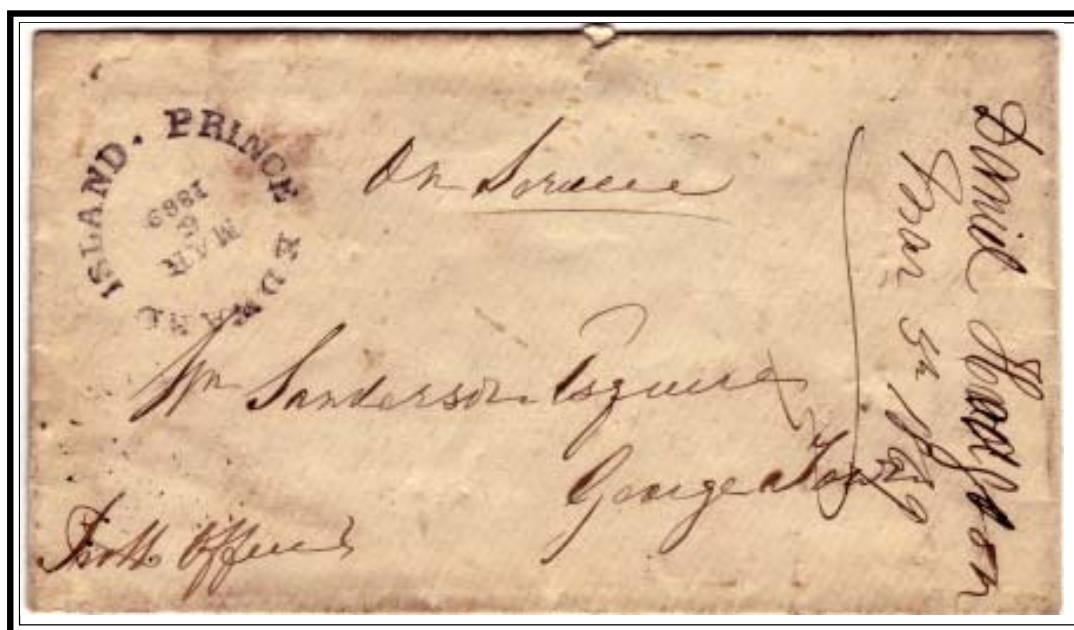 PRINCE EDWARD ISLAND.
MAR
On Service
Wm Sanderson Esquire
George Town
Office
Daniel Hodgson
Mar 5th